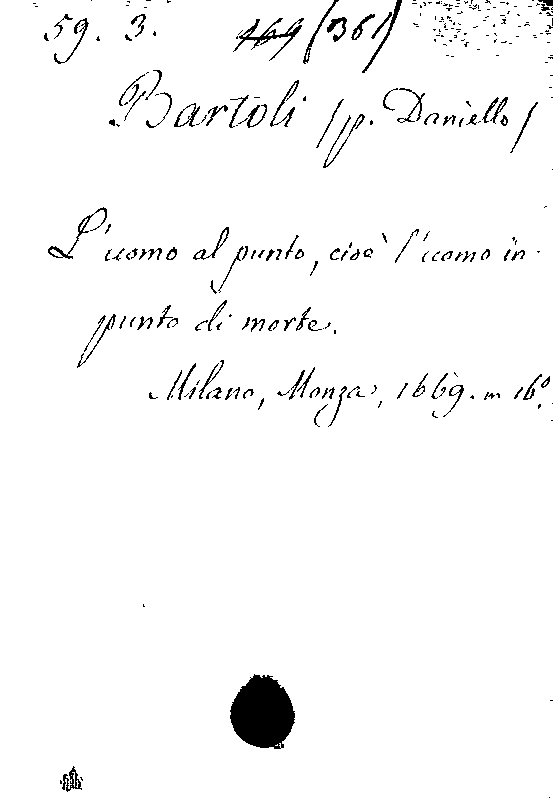 59. 3. 169 (361)
Bartoli (p. Daniello)
L'uomo al punto, cioè l'uomo in
punto di morte.
Milano, Monza, 1669. in 16º.